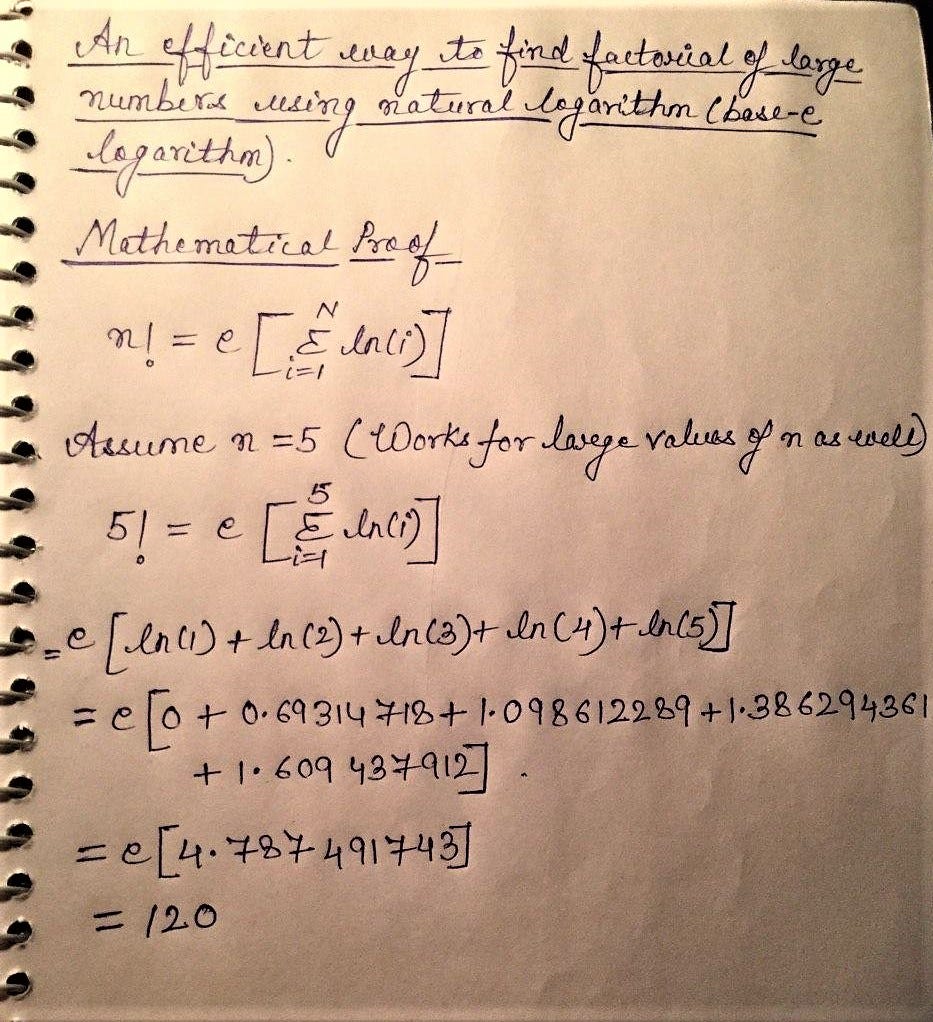 An efficient way to find factorial of large
numbers using natural logarithm (base-e
logarithm).
Mathematical Proof
n! = e [N Σ i=1 ln(i)]
Assume n = 5 (Works for large values of n as well)
5! = e [5 Σ i=1 ln(i)]
= e [ln(1) + ln(2) + ln(3) + ln(4) + ln(5)]
= e [0 + 0.69314718 + 1.098612289 + 1.386294361
+ 1.609437912].
= e [4.787491743]
= 120